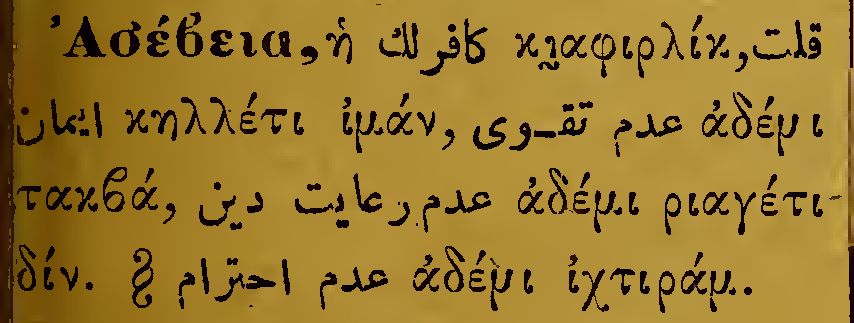 Ἀσέβεια, ἡ كافرلك κι̰αφιρλίκ, قلت
ايمان κηλλέτι ἰμάν, عدم تقوى ἀδέμι
τακϐά, عدم رعايت دين ἀδέμι ριαγέτι-
δίν. § عدم احترام ἀδέμι ἰχτιράμ.